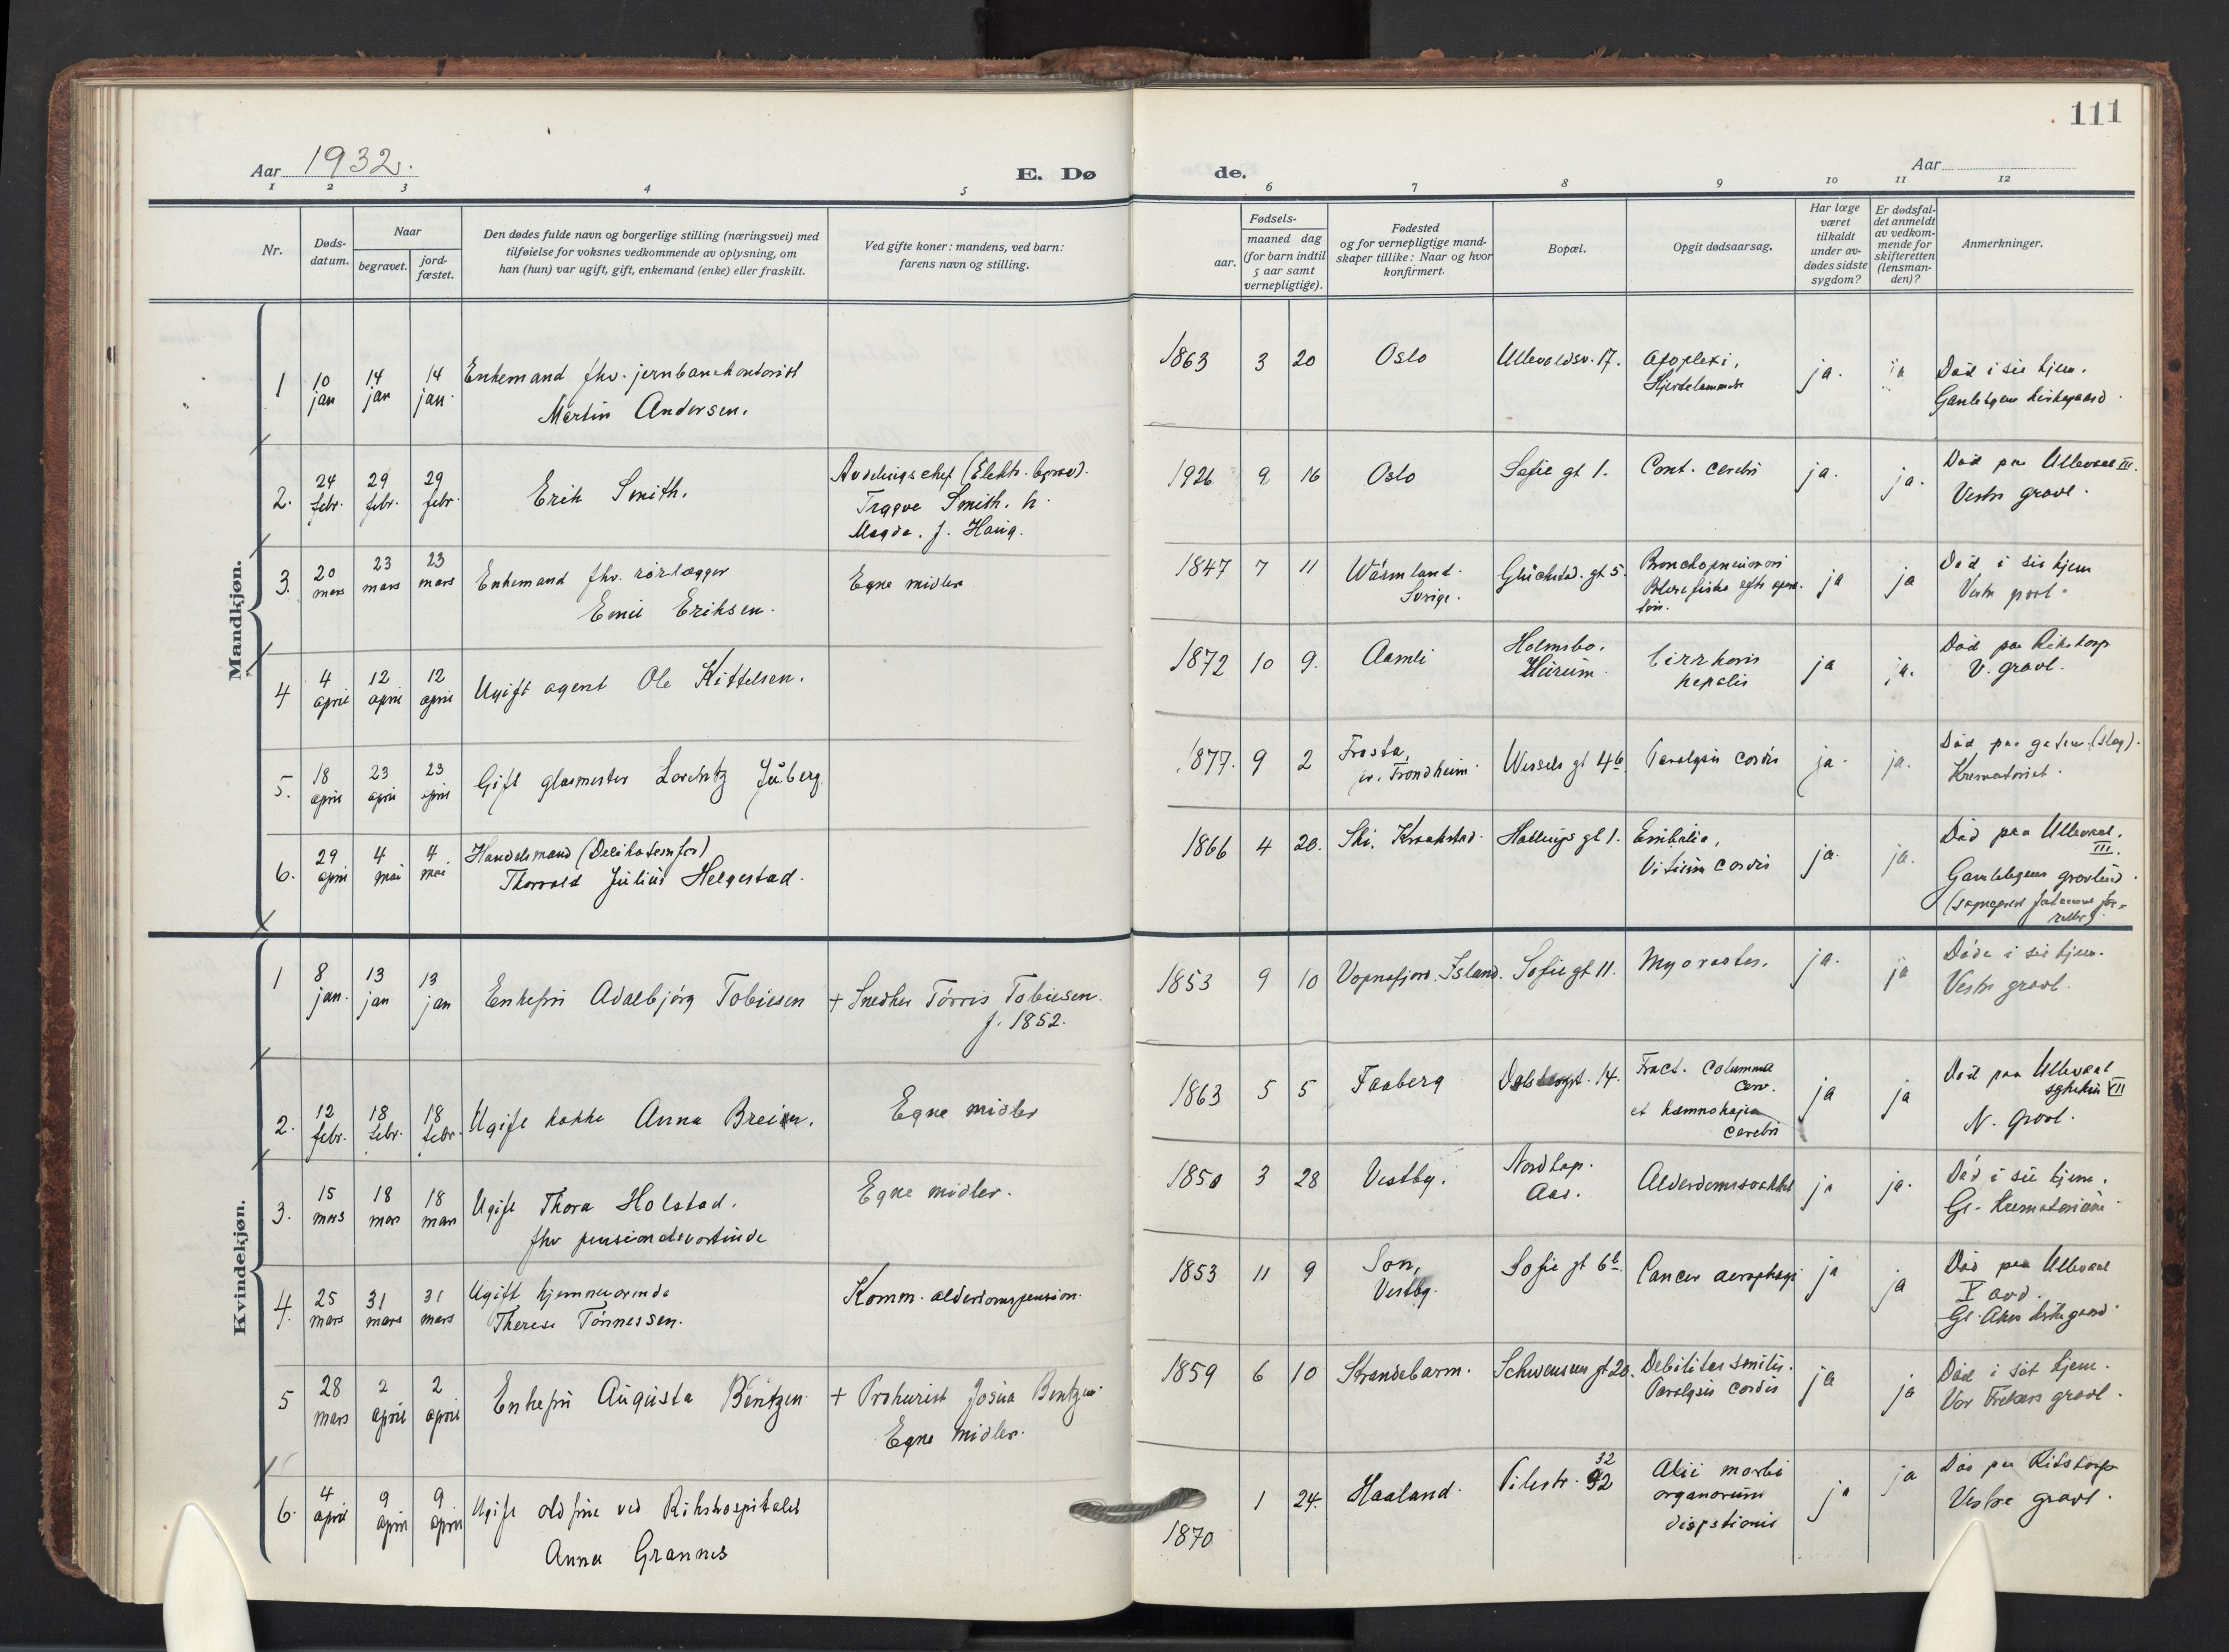 111
Aar 1932.
E. Dø
de.
Aar
1 2 3 4 5 6 7 8 9 10 11 12
Nr.
Døds-
datum.
Naar
begravet.
jord-
fæstet.
Den dødes fulde navn og borgerlige stilling (næringsvei) med
tilføielse for voksnes vedkommende av oplysning, om
han (hun) var ugift, gift, enkemand (enke) eller fraskilt.
Ved gifte koner: mandens, ved barn:
farens navn og stilling.
Fødsels-
aar.
maaned dag
(for barn indtil
5 aar samt
vernepligtige).
Fødested
og for vernepligtige mand-
skaper tillike: Naar og hvor
konfirmert.
Bopæl.
Opgit dødsaarsag.
Har læge
været
tilkaldt
under av-
dødes sidste
sygdom?
Er dødsfal-
det anmeldt
av vedkom-
mende for
skifteretten
(lensman-
den)?
Anmerkninger.
Mandkjøn.
1 10 jan 14 jan 14 jan. Enkemand fhv. jernbanekontorist
Martin Andersen.
1863 3 20 Oslo Ullevoldsv. 17. Apoplexi,
Hjertelammelse
ja. ja Död i sit hjem.
Gamlebyens kirkegaard.
2. 24 febr. 29 febr. 29 febr. Erik Smith.
Avdelingschef (Elektr. byraa).
Trygve Smith. h.
Magda. f. Haug.
1926 9 16 Oslo Sofie gt 1. Cont. cerebri ja. ja. Död paa Ullevaal III.
Vestre gravl.
3. 20 mars 23 mars 23 mars Enkemand fhv. rørlægger
Emil Eriksen.
Egne midler
1847 7 11 Wärmland.
Sverige.
Glückstad. gt 5. Bronchopneumoni
Blærefistel efter opera-
tion.
ja ja Död i sit hjem
Vestre gravl.
4 4 april 12 april 12 april Ugift agent Ole Kittelsen.
1872 10 9. Aamli Holmsbo.
Hurum.
Cirrhosis
hepatis
ja ja. Död paa Rikshosp
V. gravl.
5. 18 april 23 april 23 april Gift glasmester Lorentz Juberg.
1877. 9 2 Frosta,
pr. Trondheim.
Wessels gt 4b. Paralysis cordis ja. ja. Död paa gaten (slag).
Krematoriet.
6. 29 april 4 mai 4 mai. Handelsmand (Delikatesseforr)
Thorvald Julius Helgestad.
1866 4 20. Ski. Kraakstad. Hallings gt 1. Embolia,
Vitium cordis
ja. ja. Död paa Ullevaal.
III.
Gamlebyens gravlund.
Kvindekjøn.
1 8 jan. 13 jan 13 jan Enkefru Adalbjörg Tobiesen + Snedker Törris Tobiesen.
f. 1852.
1853 9 10 Vopnafjord. Island. Sofie gt 11. ja. ja Döde i sit hjem.
Vestre gravl.
2. 12 febr. 18 febr. 18 febr. Ugift kokke Anna Breien.
Egne midler
1863 5 5 Faaberg Dalsbergst. 14. Fract. columna
cerv.
et hæmorhagia
cerebri
ja ja Död paa Ullevaal
sykehus VII
N. gravl.
3. 15 mars 18 mars 18 mars Ugift Thora Holstad.
fhv pensionatsvertinde
Egne midler.
1850 3 28 Vestby. Nordhap.
Aas.
Alderdomssvakhet ja ja. Död i sit hjem.
Gl. Krematorium.
4. 25 mars 31 mars 31 mars Ugift hjemmeværende
Therese Tönnessen.
Komm. alderdomspension.
1853 11 9 Son,
Vestby.
Sofie gt 6b. Cancer oesophagi ja ja Död paa Ullevaal
V avd.
Gl. Akers kirkegaard.
5 28 mars 2 april 2 april Enkefru Augusta Bentzen. + Prokurist Josua Bentzen.
Egne midler.
1859 6 10 Strandebarm. Schwensens gt 20. Debilitas senilis.
Paralysis cordis
ja ja Död i sit hjem.
Vor Frelsers gravl.
6. 4 april 9 april 9 april Ugift oldfrue ved Rikshospitalet
Anna Grannes
1870 1 24. Haaland. Pilestr. 32
Alii morbi
organorum
digestionis
ja ja Död paa Rikshosp
Vestre gravl.